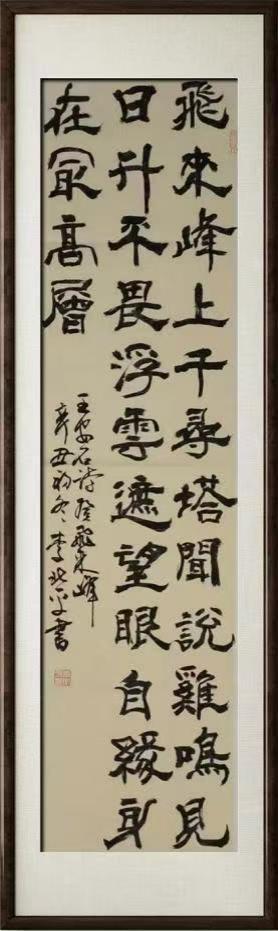 飛來峰上千尋塔聞說雞鳴見
日升不畏浮雲遮望眼自緣身
在冣髙層
王安石詩登飛來峰
辛丑初冬李書